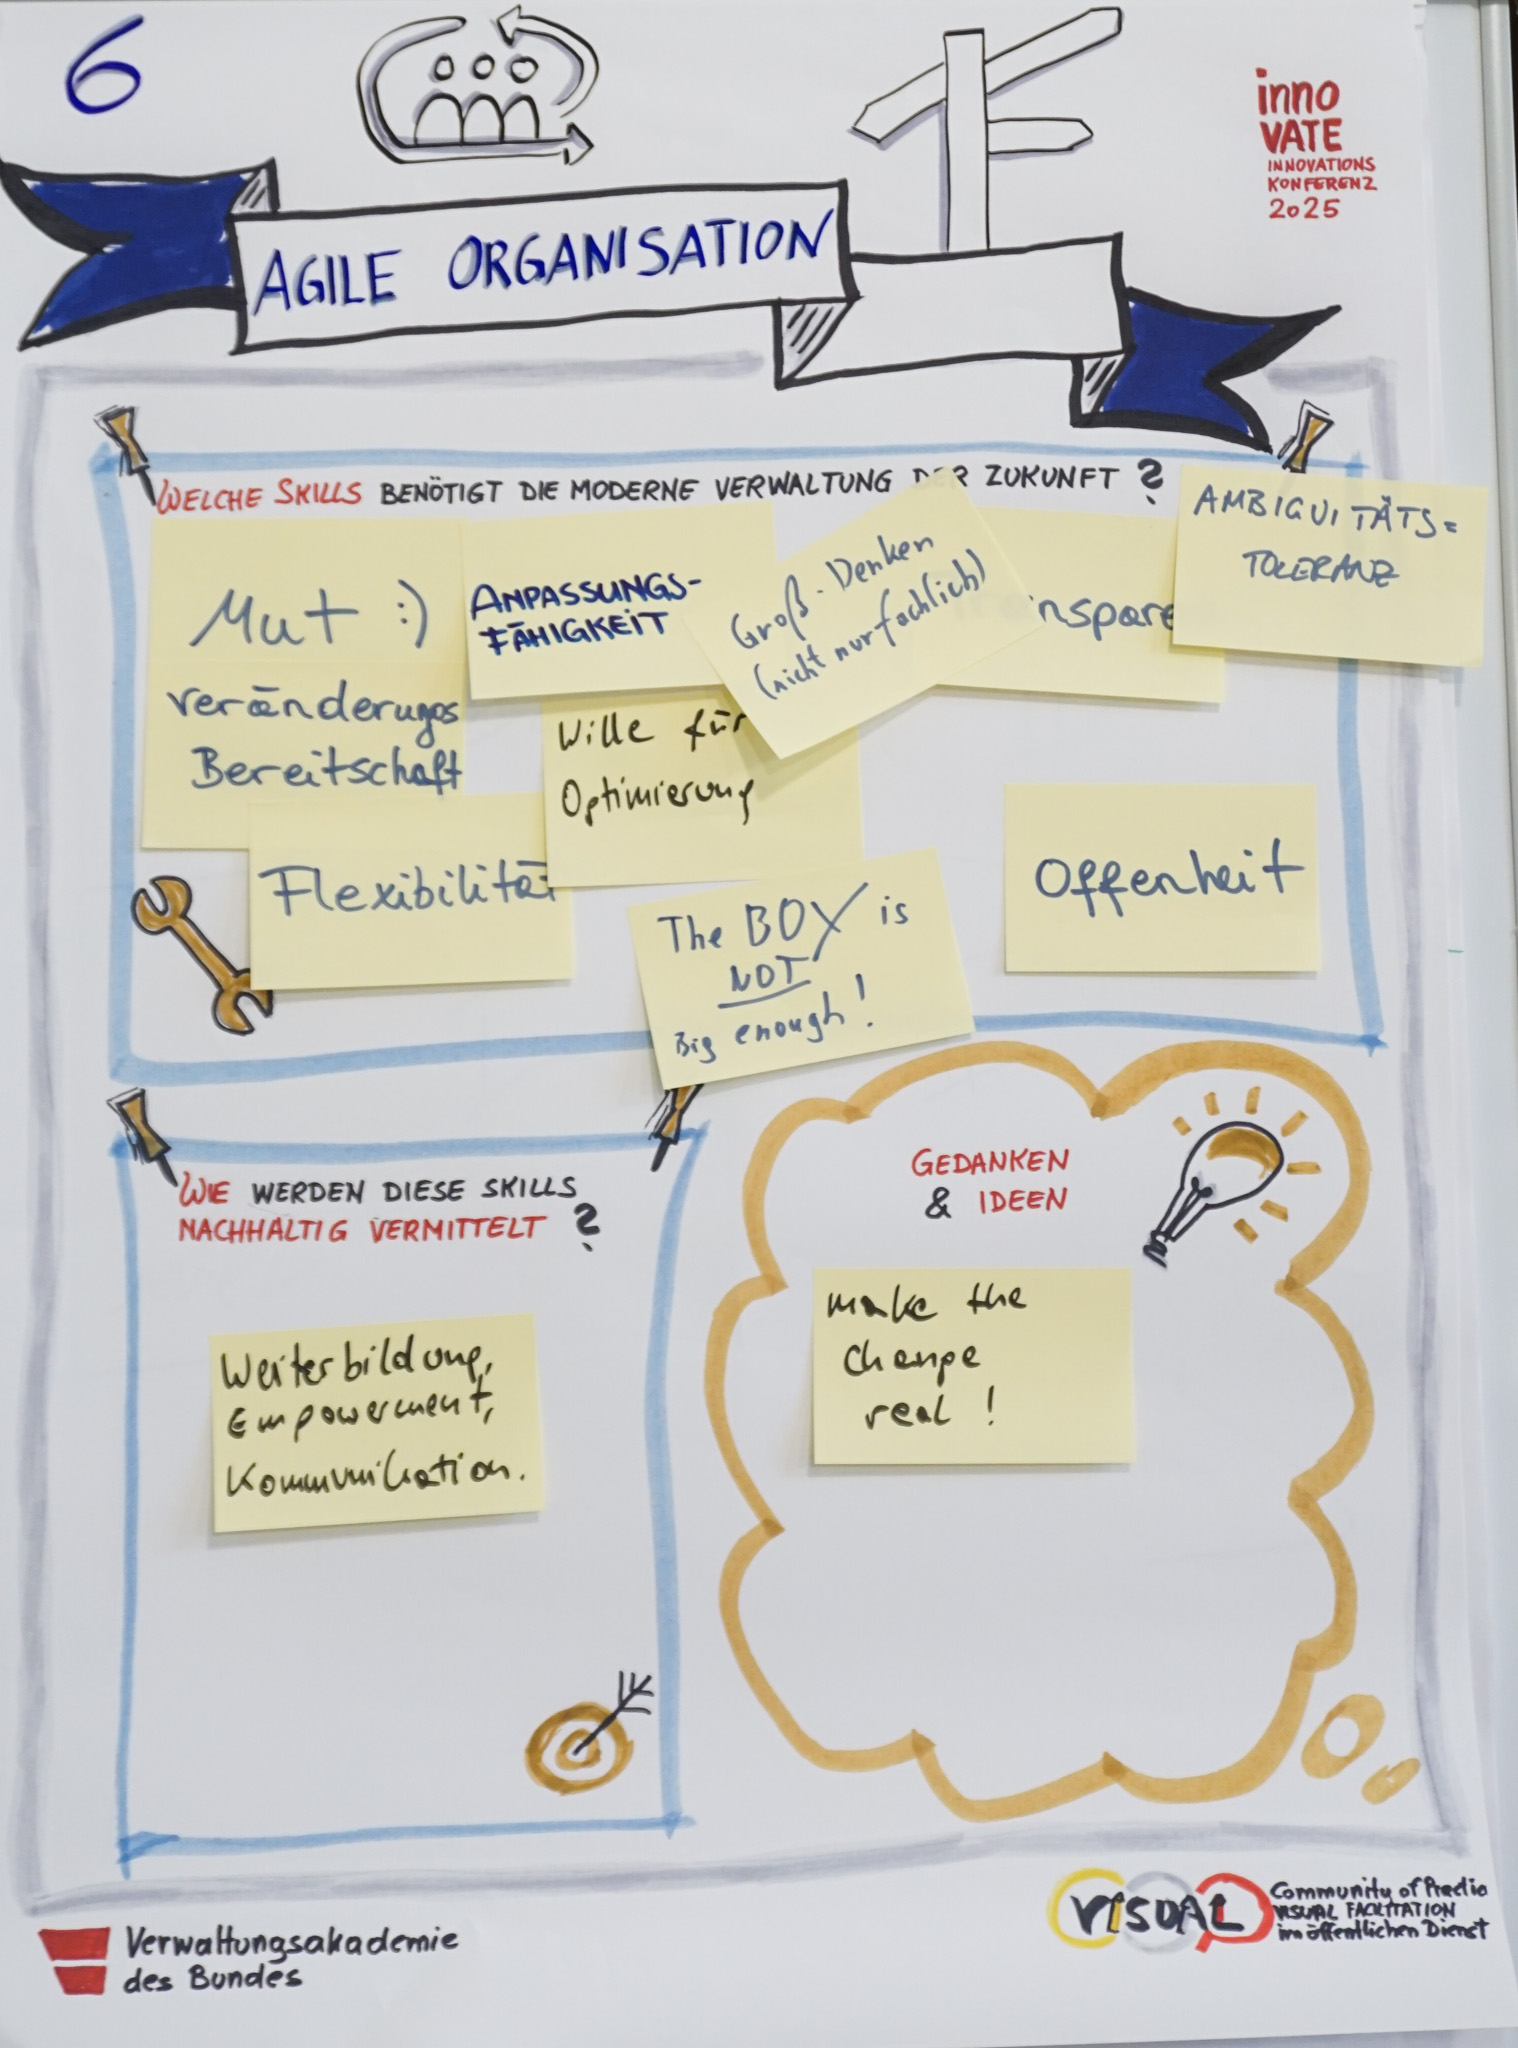 6
inno
VATE
INNOVATIONS
KONFERENZ
2025
AGILE ORGANISATION
WELCHE SKILLS BENÖTIGT DIE MODERNE VERWALTUNG DER ZUKUNFT?
Mut :)
Veränderungs
Bereitschaft
ANPASSUNGS-
FÄHIGKEIT
Groß-Denken
(nicht nur fachlich)
nspare
AMBIGUITÄTS=
TOLERANZ
Wille für
Optimierung
Flexibilität
The BOX is
NOT
Big enough!
Offenheit
WIE WERDEN DIESE SKILLS
NACHHALTIG VERMITTELT?
Weiterbildung,
Empowerment,
Kommunikation.
GEDANKEN
& IDEEN
make the
change
real!
Verwaltungsakademie
des Bundes
VISUAL
Community of Practice
VISUAL FACILITATION
im öffentlichen Dienst